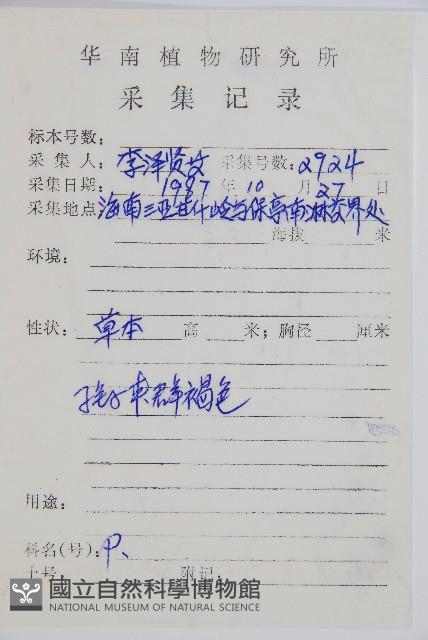 华南植物研究所
采集记录
标本号数:
采集人: 李泽贤 采集号数: 2924
采集日期: 1997 年 10 月 27 日
采集地点 海南三亚甘什岭与保亭南淋交界处
海拔 米
环境:
性状: 草本 高 米; 胸径 厘米
孢子囊群褐色
用途:
科名(号): P.
土号 附记:
國立自然科學博物館
NATIONAL MUSEUM OF NATURAL SCIENCE